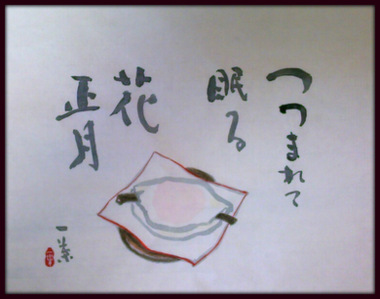 つつまれて
眠る
花
正月